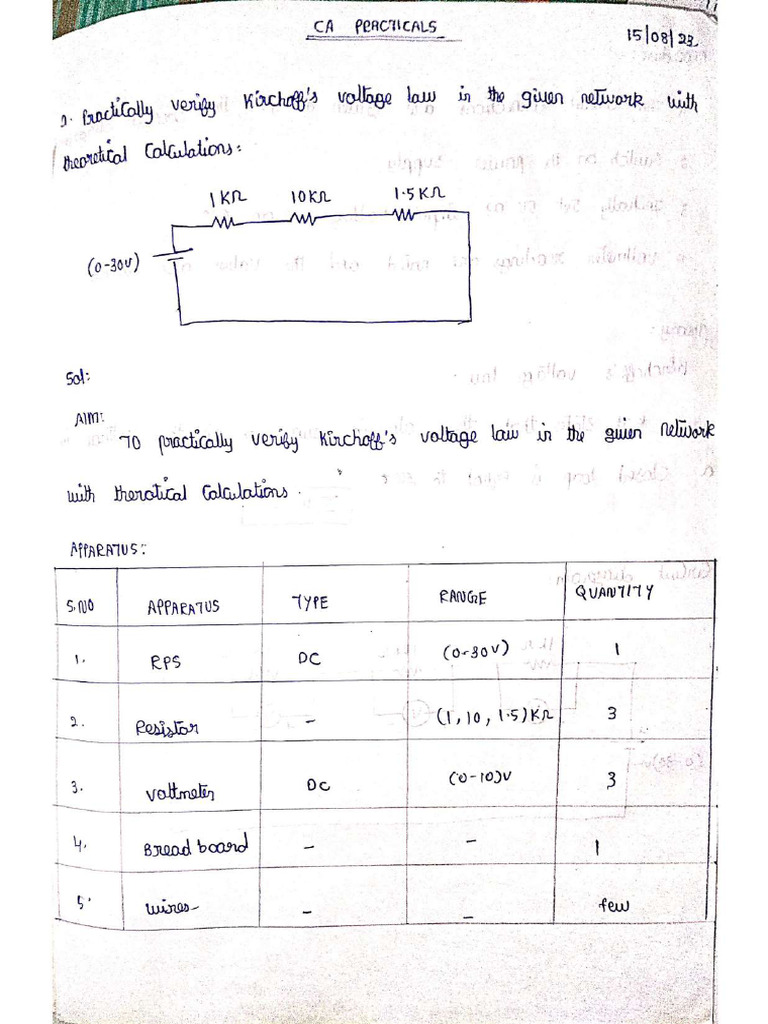 CA PRACTICALS
15/08/23
1. Practically verify Kirchoff's voltage law in the given network with
theoretical Calculations:
1KΩ 10KΩ 1.5KΩ
(0-30V)
Sol:
AIM:
To practically verify Kirchoff's voltage law in the given network
with therotical Calculations.
APPARATUS:
S.NO APPARATUS TYPE RANGE QUANTITY
1. RPS DC (0-30V) 1
2. Resistor - (1, 10, 1.5)KΩ 3
3. Voltmeter DC (0-10)V 3
4. Bread board - - 1
5. wires - - few